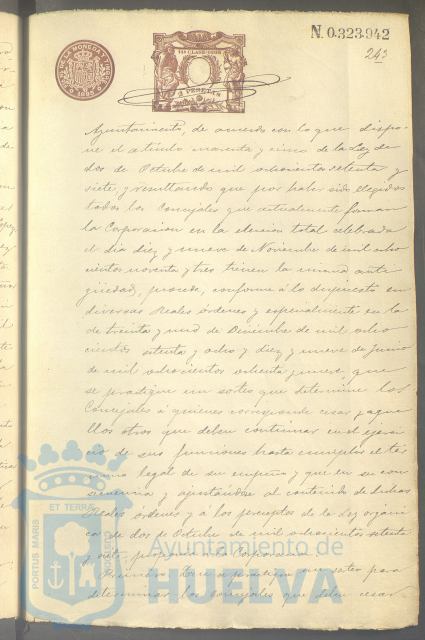 N. 0.323.942
243
DE LA MONEDA Y TIMBRE
1895
2 PESETAS
Ayuntamiento, de acuerdo con lo que dispo-
ne el artículo noventa y cinco de la Ley de
dos de Octubre de mil ochocientos setenta y
siete, y resultando que por haber sido elegidos
todos los Concejales que actualmente forman
la Corporacion en la eleccion total celebrada
el dia diez y nueve de Noviembre de mil ocho
cientos noventa y tres tienen la misma anti
güedad, procede, conforme á lo dispuesto en
diversas Reales órdenes y especialmente en la
de treinta y uno de Diciembre de mil ocho
cientos setenta y ocho y diez y nueve de Junio
de mil ochocientos ochenta y nueve, que
se practique un sorteo que determine los
Concejales á quienes corresponde cesar y aque
llos otros que deben continuar en el ejerci
cio de sus funciones hasta cumplir el tér
mino legal de su empeño y que en su con
secuencia y ajustándose al contenido de dichas
Reales órdenes y á los preceptos de la Ley orgáni
ca de dos de Octubre de mil ochocientos setenta
y siete
Primero
determinar los Concejales que deben cesar
ET TERRAE
PORTUS MARIS
CUSTODIA
Ayuntamiento de
HUELVA